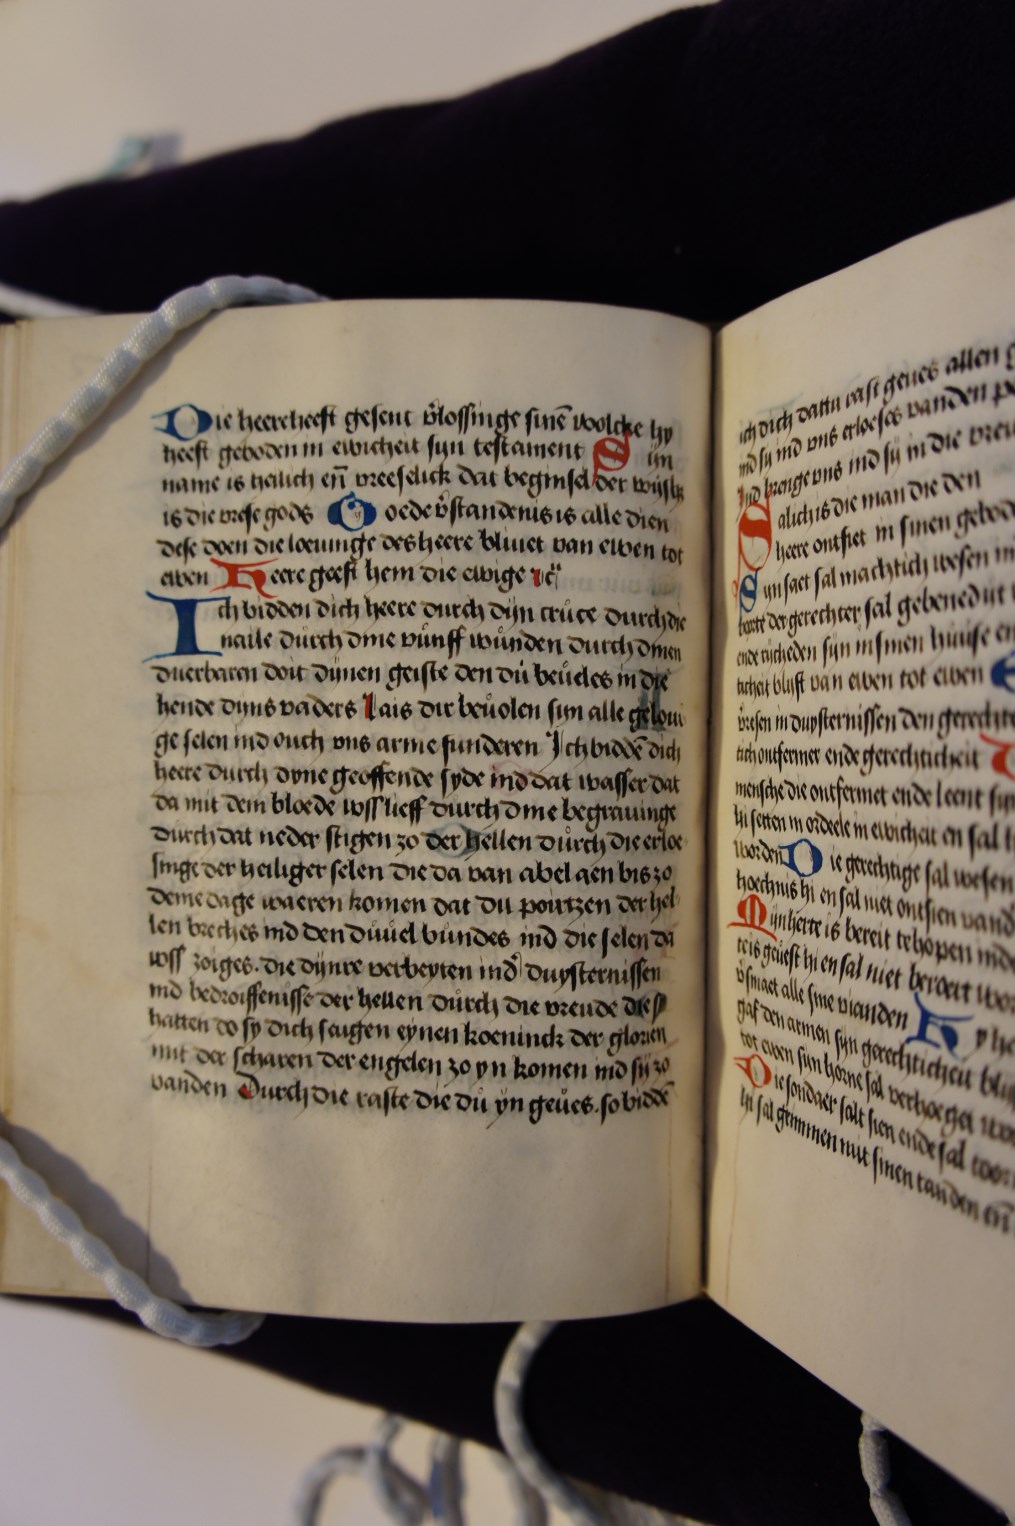 Die heere heeft gesent v̉lossinge sinē voolcke hy
heeft geboden in ewicheit syn testament Syn
name is heilich en̄ vreeselick dat beginsel der wijsh
is die vrese gods Goede v̉standenis is alle dien
dese doen die loeuinge des heere bliuet van ewen tot
ewen Heere geeft hem die ewige re
Ich bidden dich heere durch dyn cruce durch die
naile durch dine vunff wunden durch dinen
duerbaren doit dynen geiste den du beueles in die
hende dyns vaders Lais dir beuolen syn alle gelouu
ge selen ind ouch vns arme sunderen Ich biddē dich
heere durch dyne geoffende syde ind dat wasser dat
da mit dem bloede vsslieff durch dine begrauinge
durch dat neder stigen zo der hellen durch die erloe
singe der heiliger selen die da van abel aen bis zo
deme dage waeren komen dat du portzen der hel
len breches ind den duuel bundes ind die selen da
vss zoiges. die dynre verbeyten ind duysternissen
ind bedroiffenisse der hellen durch die vreude die s
hatten do sy dich saigen eynen koeninck der glorien
mit der scharen der engelen zo yn komen ind sy zo
banden Durch die raste die du yn geues. so biddē
ich dich dattu rast geues allen
ind sy ind vns erloeses vanden
Ind brenge vns ind sy in die vreu
Salich is die man die den
heere ontsiet in sinen gebod
Syn saet sal machtich wesen in
der gerechter sal gebenedyt
ende rijcheden syn in sinen huuse en
ticheit blijft van ewen tot ewen
v̉resen in duysternissen den gerecht
ontfermer ende gerechticheit
mensche die ontfermet ende leent syn
hi setten in ordeele in ewicheit en sal
worden Die gerechtige sal wesen
hoechnis hi en sal niet ontsien vand
Mijn herte is bereit te hopen inde
is geuest hi en sal niet beroert wor
v̉smaet alle sine vianden Hy he
gaf den armen syn gerechticheit bliu
tot ewen syn horne sal verhoeget
Die sondaer salt sien ende sal toor
hi sal grimmen mit sinen tanden en̄